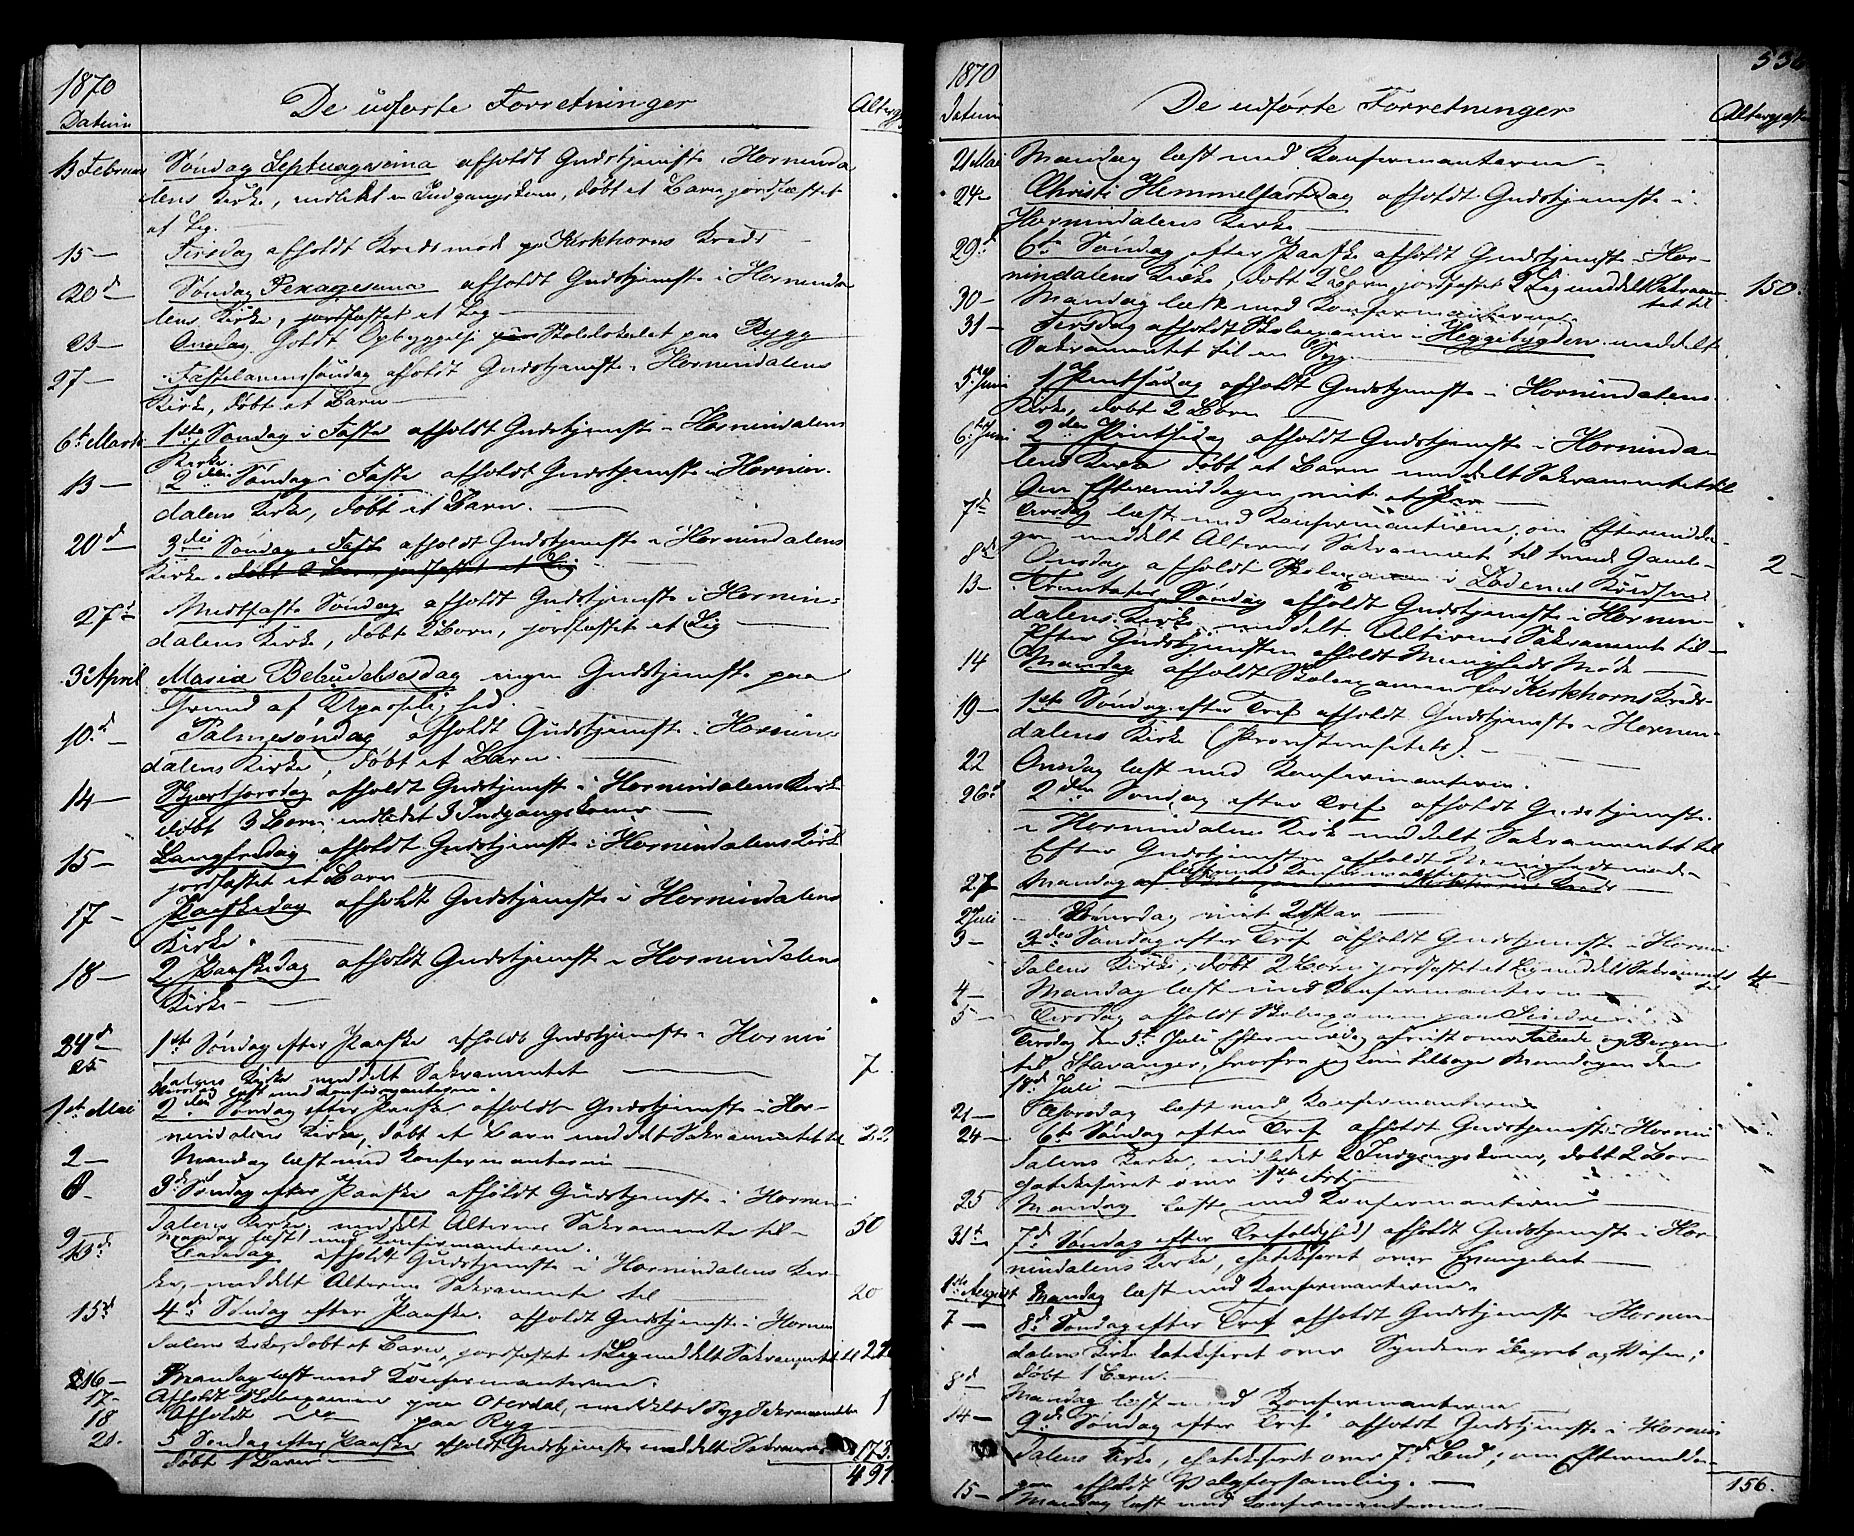 1870
Datum
De udførte Forretninger
Alterg
13 Februar Søndag Septuagesima afholdt Gudstjeneste i Horninda
lens Kirke, indledet en Indgangskone, døbt et Barn, jordfæstet
et Lig.
15 — Tirsdag afholdt Kredsmøde paa Kirkhorns Kreds
20d Søndag Sexagesima afholdt Gudstjeneste i Horninda
lens Kirke, jordfæstet et Lig
23 — Onsdag holdt Opbyggelse Skolelokalet paa Rygg
27 — Fastelavenssøndag afholdt Gudstjeneste i Hornindalens
Kirke, døbt et Barn
6te Marts 1ste Søndag i Faste afholdt Gudstjeneste i Hornindalens
Kirke.
13 — 2den Søndag i Faste afholdt Gudstjeneste i Hornin-
dalens Kirke, døbt et Barn.
20d 3die Søndag i Faste afholdt Gudstjeneste i Hornindalens
Kirke. døbt 2 Børn, jordfæstet et Lig
27d Midfaste Søndag afholdt Gudstjeneste i Hornin-
dalens Kirke, døbt 2 Børn, jordfæstet et Lig
3d April Mariæ Bebudelsesdag ingen Gudstjeneste paa
Grund af Upasselighed.
10d Palmesøndag afholdt Gudstjeneste i Hornin
dalens Kirke, døbt et Barn.
14 — Skjærthorsdag afholdt Gudstjeneste i Hornindalens Kirke
døbt 3 Børn, indledet 3 Indgangskoner
15 — Langfredag afholdt Gudstjeneste i Hornindalens Kirke
jordfæstet et Barn
17 — Paaskedag afholdt Gudstjeneste i Hornindalens
Kirke.
18 — 2 Paaskedag afholdt Gudstjeneste i Hornindalens
Kirke
24d 1ste Søndag efter Paaske afholdt Gudstjeneste i Hornin
dalens Kirke meddelt Sakramentet 7
25 læst med Konfirmanterne.
1ste Mai 2den Søndag efter Paaske afholdt Gudstjeneste i Hor-
nindalens Kirke, døbt et Barn meddelt Sakramentet til 22
2 — Mandag læst med Konfirmanterne
8 3d Søndag efter Paaske afholdt Gudstjeneste i Hornin
dalens Kirke, meddelt Alterens Sakramente til — 50
9 Mandag læst med Konfirmanterne.
13d afholdt Gudstjeneste i Hornindalens Kir-
ke, meddelt Alterens Sakramente til 20
15d 4d Søndag efter Paaske. afholdt Gudstjeneste i Hornin
dalens Kirke, døbt et Barn, jordfæstet et Lig meddelt Sakramentet til
16 — Mandag læst med Konfirmanterne.
17 — Afholdt Skoleexamen paa Oterdal, meddelt 1 Syg Sakramentet 1
18 Afholdt do paa Ryg
5 Søndag efter Paaske afholdt Gudstjeneste meddelt Sakrament
døbt 1 Barn
173
491
1870
Datum
De udførte Forretninger
Altergjæster
Mai Mandag læst med Konfirmanterne
24 — Christi Hemmelfartsdag afholdt Gudstjeneste i
Hornindalens Kirke
29d 6te Søndag efter Paaske afholdt Gudstjeneste i Hor-
nindalens Kirke, døbt 2 Børn, jordfæstet 2 Lig meddelt Sakramen-
tet til 150.
30 — Mandag læst med Konfirmanterne
31 — Tirsdag afholdt Skoleexamen i Heggibygden meddelt
Sakramentet til en Syg.
5 Juni 1 Pintsedag afholdt Gudstjeneste i Hornindalens
Kirke, døbt 2 Børn
6te Juni 2den Pintsedag afholdt Gudstjeneste i Horninda-
lens Kirke døbt et Barn meddelt Sakramentet til
Om Eftermiddagen viet et Par
7d Tirsdag læst med Konfirmanterne, om Eftermidda-
gen meddelt Alterens Sakrament til tvende Gamle 2 —
8d Onsdag afholdt Skoleexamen i Kredsen
13 — Søndag afholdt Gudstjeneste i Hornin-
dalens Kirke, meddelt Alterens Sakramente til —
Efter Gudstjenesten afholdt Menigheds Møde
14 Mandag afholdt Skoleexamen for Kirkhorns Kreds
19 — 1ste Søndag efter Tref afholdt Gudstjeneste i Hornin-
dalens Kirke
22 Onsdag læst med Konfirmanterne.
26d 2den Søndag efter Tref afholdt Gudstjeneste
i Hornindalens Kirke meddelt Sakramentet til
Efter Gudstjenesten afholdt Menighedsmøde
27 Mandag læst med Konfirmanterne
2 Juli viet 2 Par
3 — 3die Søndag efter Tref afholdt Gudstjeneste i Hornin
dalens Kirke, døbt 2 Børn jordfæstet et Lig meddelt Sakramentet
til 4 —
4 — Mandag læst med Konfirmanterne
5 — Tirsdag afholdt Skoleexamen paa
Tirsdag den 5te Juli Eftermiddag afreist over Faleide og Bergen
til Stavanger, hvorfra jeg kom tilbage Mandagen den
18d Juli
21 — Thorsdag læst med Konfirmanterne
24 — 6te Søndag efter Tref afholdt Gudstjeneste i Hornin
dalens Kirke, indledet 2 Indgangskoner, døbt 2 Børn
katekiseret over 1ste Art
25 Mandag læst med Konfirmanterne
31te 7d Søndag efter Trefoldighed afholdt Gudstjeneste i Hor-
nindalens Kirke, katekiseret over Evangeliet
1ste August Mandag læst med Konfirmanterne.
7 — 8d Søndag efter Tref afholdt Gudstjeneste i Hornin
dalens Kirke katekiseret over Syndens Begreb og Væsen;
døbt 1 Barn.
8d — Mandag læst med Konfirmanterne
14 — 9d Søndag efter Tref afholdt Gudstjeneste i Hornin
dalens Kirke, katekiseret over 7d Bud; om Eftermidda-
gen afholdt Valgforsamling.
15 — Mandag læst med Konfirmanterne
156.